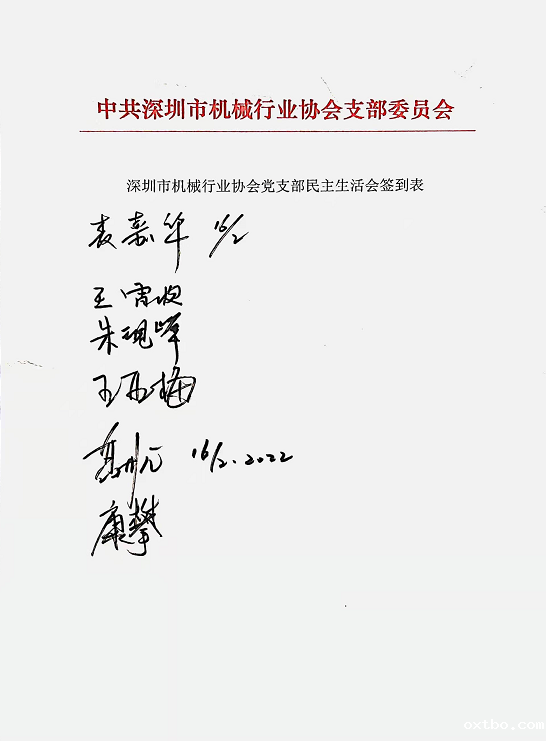 中共深圳市机械行业协会支部委员会
深圳市机械行业协会党支部民主生活会签到表
袁嘉华 16/2
王
朱现峰
王
16/2.2022
康攀
oxtbo.com